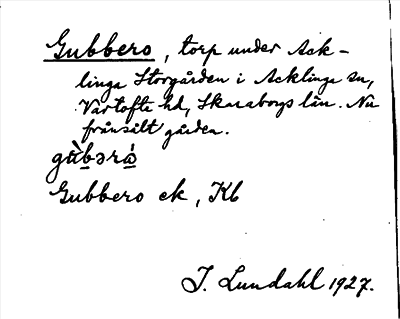 Gubbero, torp under Ack-
linga Storgården i Acklinga sn,
Vartofta hd, Skaraborgs län. Nu
frånsålt gården.
Gubbero ek, Kb
I. Lundahl 1927.